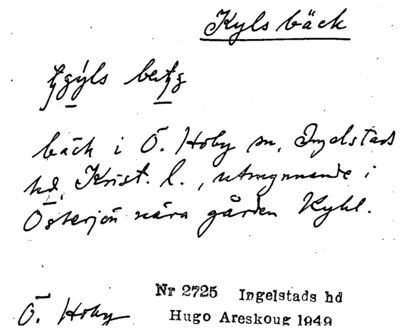 Kyls bäck
bäck i Ö. Hoby sn, Ingelstads
hd, Krist. l., utmynnande i
Östersjön nära gården Kyhl.
Nr 2725 Ingelstads hd
Ö. Hoby
Hugo Areskoug 1949